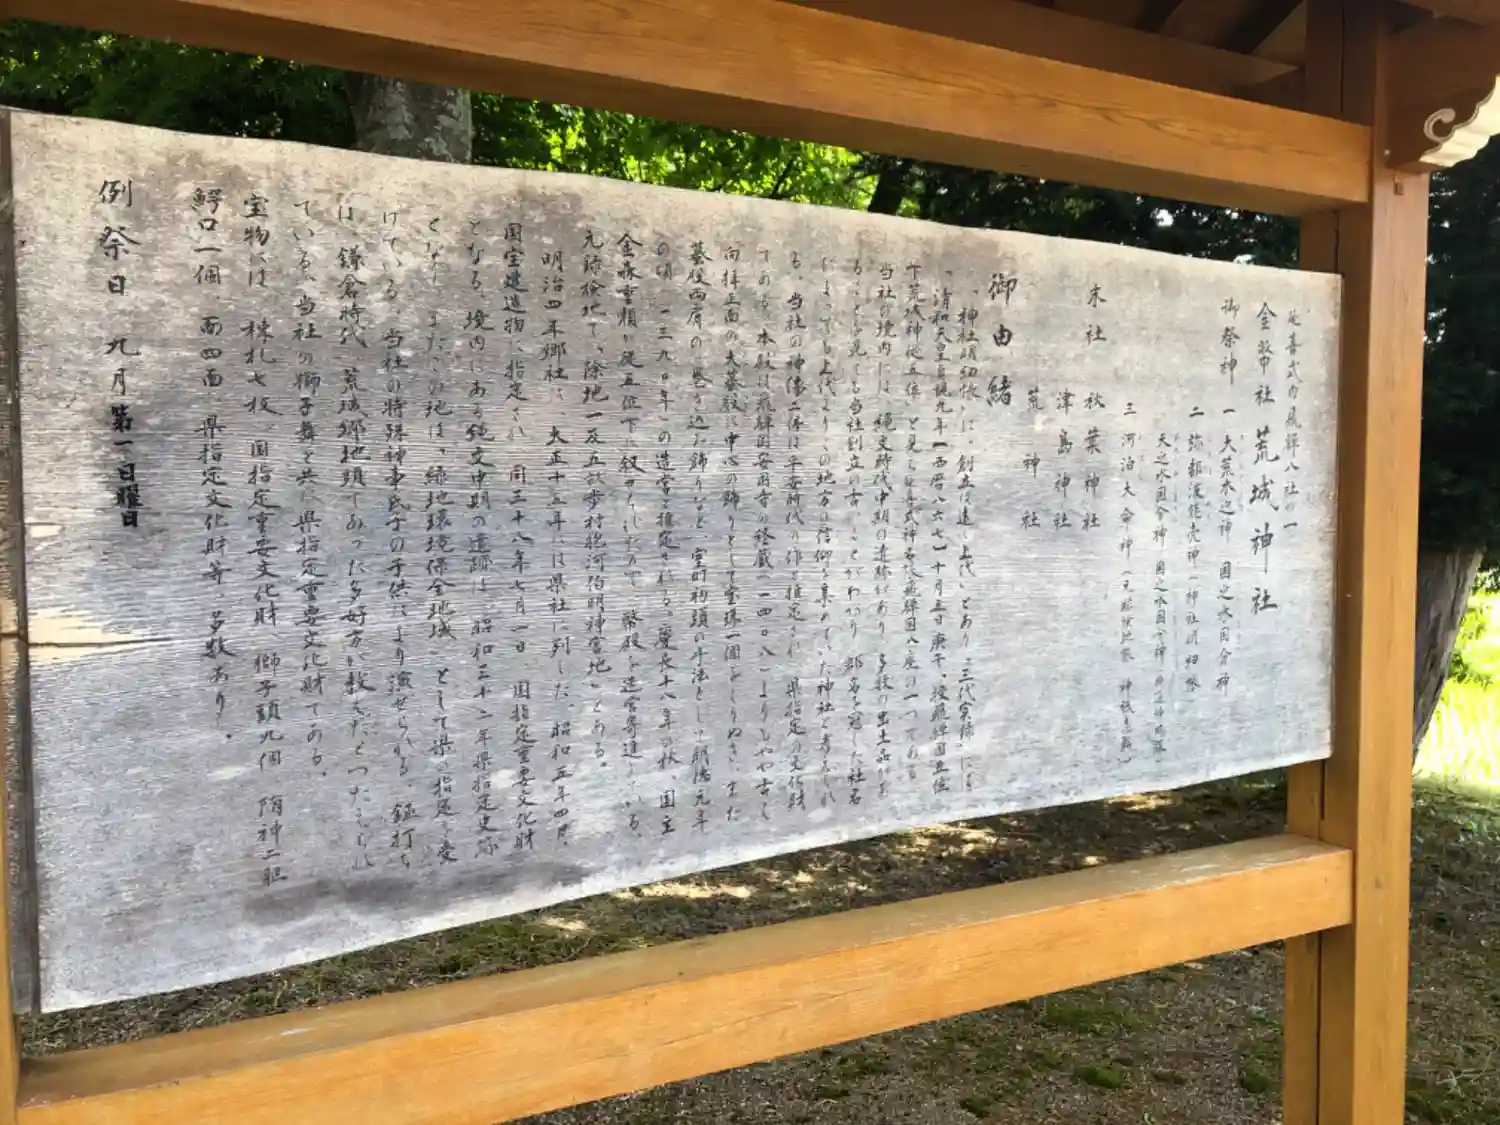 延喜式内飛騨八社の一
金幣社 荒城神社
御祭神 一 大荒木之神 国之水国分神
二 弥都波能売神(神社明細帳)
天之水国分神 国之水国分神
三 河泊大命神(元禄検地帳 神祇
末社 秋葉神社
津島神社
荒神社
御由緒
「神社明細帳」に、創立は遠し上代」とあり「三代実録」には
「清和天皇貞観九年(西暦八六七)十月五日庚午、授飛騨国正五位
下荒城神従五位」と見え延喜式神名帳飛騨国八座の一つである
当社の境内には、縄文時代中期の遺跡があり、多数の出土品があ
ることを見ても当社創立の古いことがわかり、郡名を冠した社名
によっても上代よりこの地方の信仰を集めていた神社と考えられ
る。当社の神像二体は平安時代の作と推定され、県指定の文化財
である。本殿は飛騨国安国寺の経蔵(一四〇八)よりもやや古く
向拝正面の大蟇股に中心の飾りとして宝珠一個をくりぬき、また
蟇股両肩の巻き込み飾りなど、室町初頭の手法として明徳元年
の頃(一三九〇年)の造営と推定される。慶長十八年の秋、国主
金森重頼が従五位下に叙せられたので、幣殿を造営寄進している。
元禄検地で、除地一反五畝歩村抱河伯明神宮地」とある。
明治四年郷社に、大正十五年には県社に列した。昭和五年四月、
国宝建造物に指定され、同三十八年七月一日、国指定重要文化財
となる。境内にある縄文中期の遺跡は、昭和三十二年県指定史跡
となり、またこの地は、「緑地環境保全地域」として県の指定を受
けている。当社の特殊神事氏子の手然により演ぜられる、鉦打ち
は、鎌倉時代、荒城郷地頭であった多好方が教えたとつたえられ
ている。当社の獅子舞と共に県指定重要文化財である。
宝物には 棟札七枚。国指定重要文化財、獅子頭九個 隋神二躯
鰐口一個、面四面 県指定文化財等、多数あり。
例祭日 九月第一日曜日